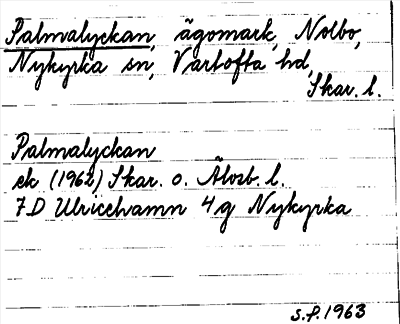 Palmalyckan, ägomark, Nolbo,
Nykyrka sn, Vartofta hd,
Skar. l.
Palmalyckan
ek (1962) Skar. o. Älvsb. l.
7D Ulricehamn 4g Nykyrka
S.P. 1963